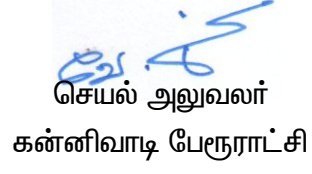 செயல் அலுவலர்
கன்னிவாடி பேரூராட்சி